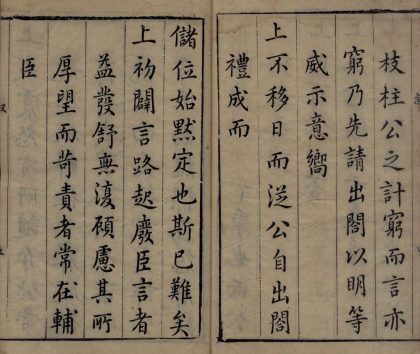 枝柱公之計窮而言亦
窮乃先請出閤以明等
威示意嚮
上不移日而從公自出閤
禮成而
儲位始默定也斯已難矣
上初闢言路起廢臣言者
益發舒無復顧慮其所
厚望而苛責者常在輔
臣